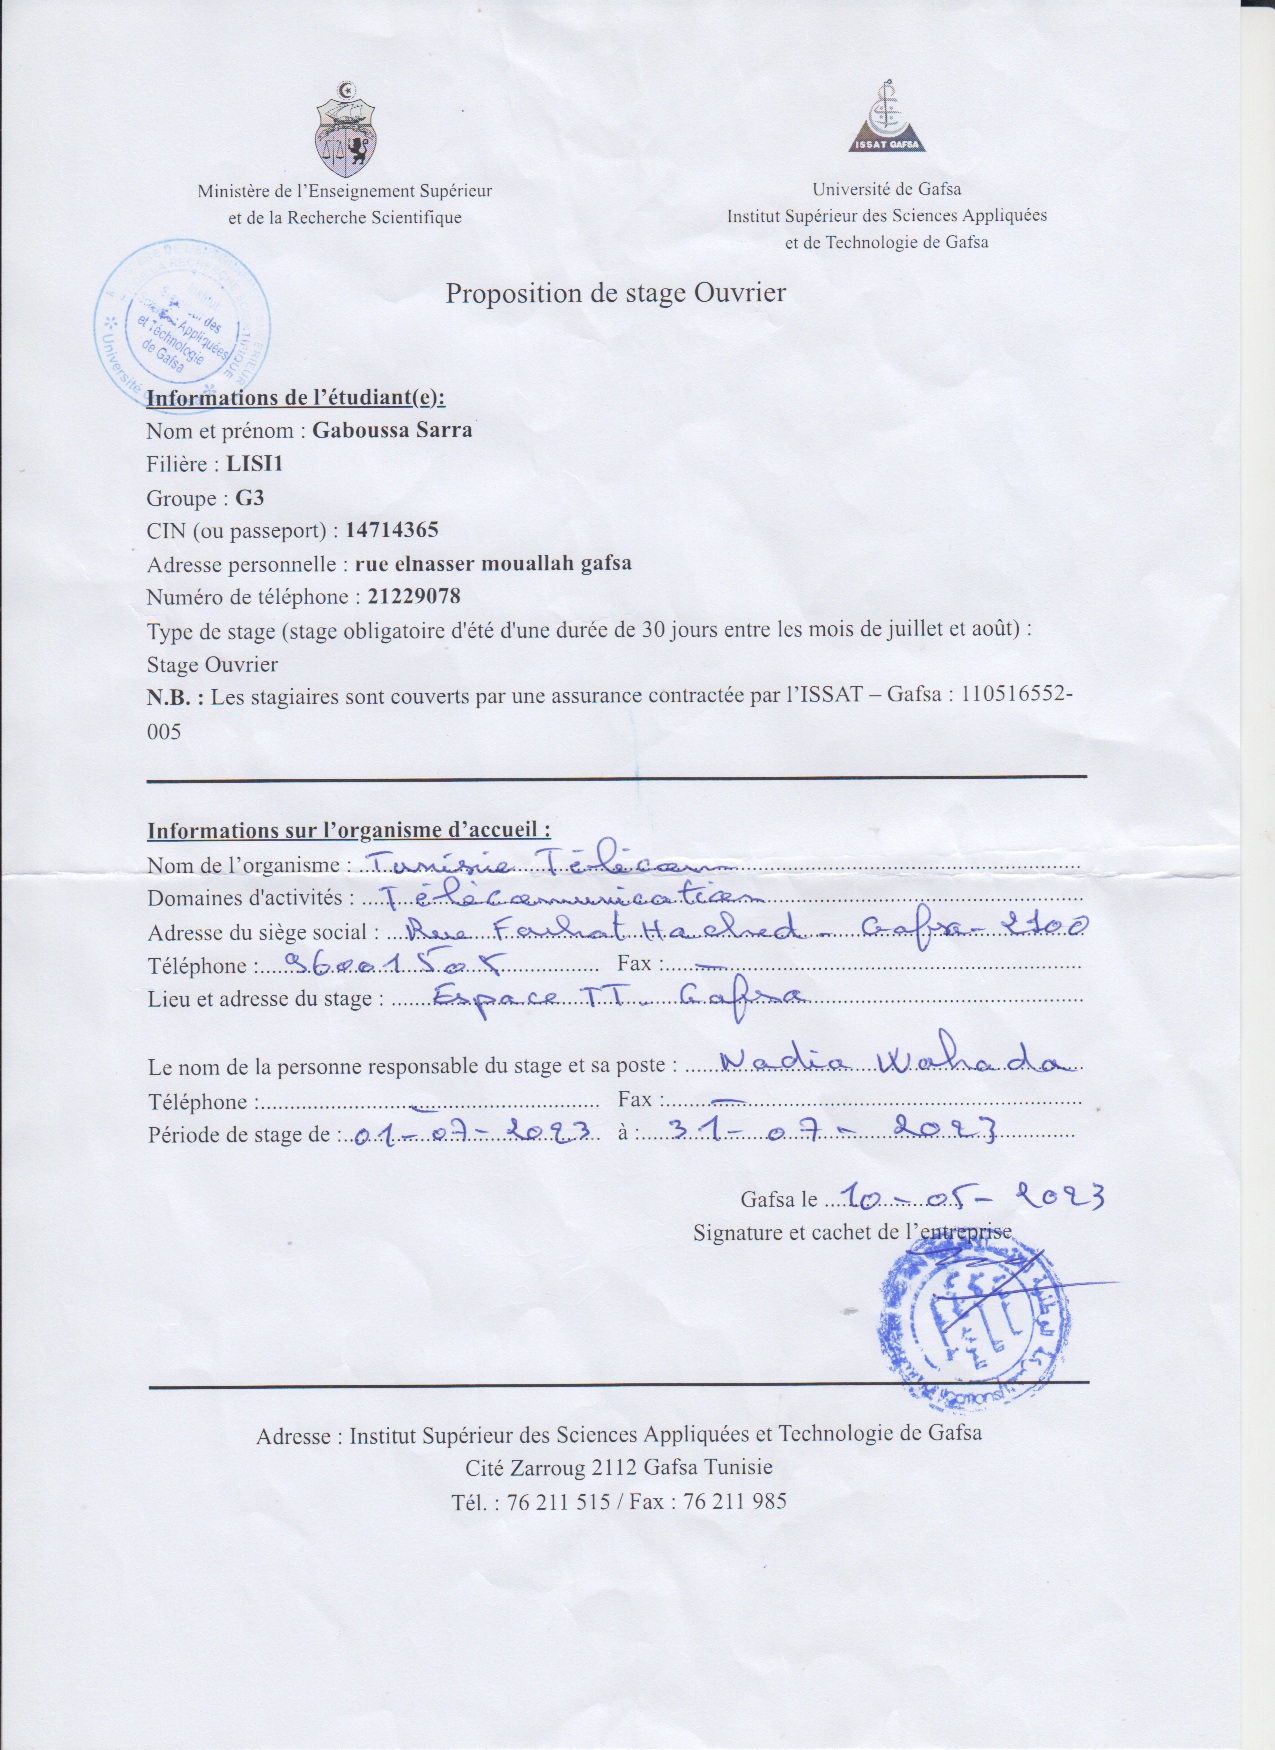 ISSAT GAFSA
Ministère de l'Enseignement Supérieur
et de la Recherche Scientifique
Université de Gafsa
Institut Supérieur des Sciences Appliquées
et de Technologie de Gafsa
Proposition de stage Ouvrier
des
Appliquées
et Technologie
de Gafsa
Université
Informations de l'étudiant(e):
Nom et prénom : Gaboussa Sarra
Filière : LISI1
Groupe : G3
CIN (ou passeport) : 14714365
Adresse personnelle : rue elnasser mouallah gafsa
Numéro de téléphone : 21229078
Type de stage (stage obligatoire d'été d'une durée de 30 jours entre les mois de juillet et août) :
Stage Ouvrier
N.B. : Les stagiaires sont couverts par une assurance contractée par l'ISSAT – Gafsa : 110516552-
005
Informations sur l'organisme d'accueil :
Nom de l'organisme : Tunisie Télécom
Domaines d'activités : Télécommunication
Adresse du siège social : Rue Farhat Hached - Gafsa - 2100
Téléphone : 96001505 Fax : —
Lieu et adresse du stage : Espace TT - Gafsa
Le nom de la personne responsable du stage et sa poste : Nadia Wahada
Téléphone : — Fax : —
Période de stage de : 01-07-2023 à : 31-07-2023
Gafsa le 10-05-2023
Signature et cachet de l'entreprise
Adresse : Institut Supérieur des Sciences Appliquées et Technologie de Gafsa
Cité Zarroug 2112 Gafsa Tunisie
Tél. : 76 211 515 / Fax : 76 211 985